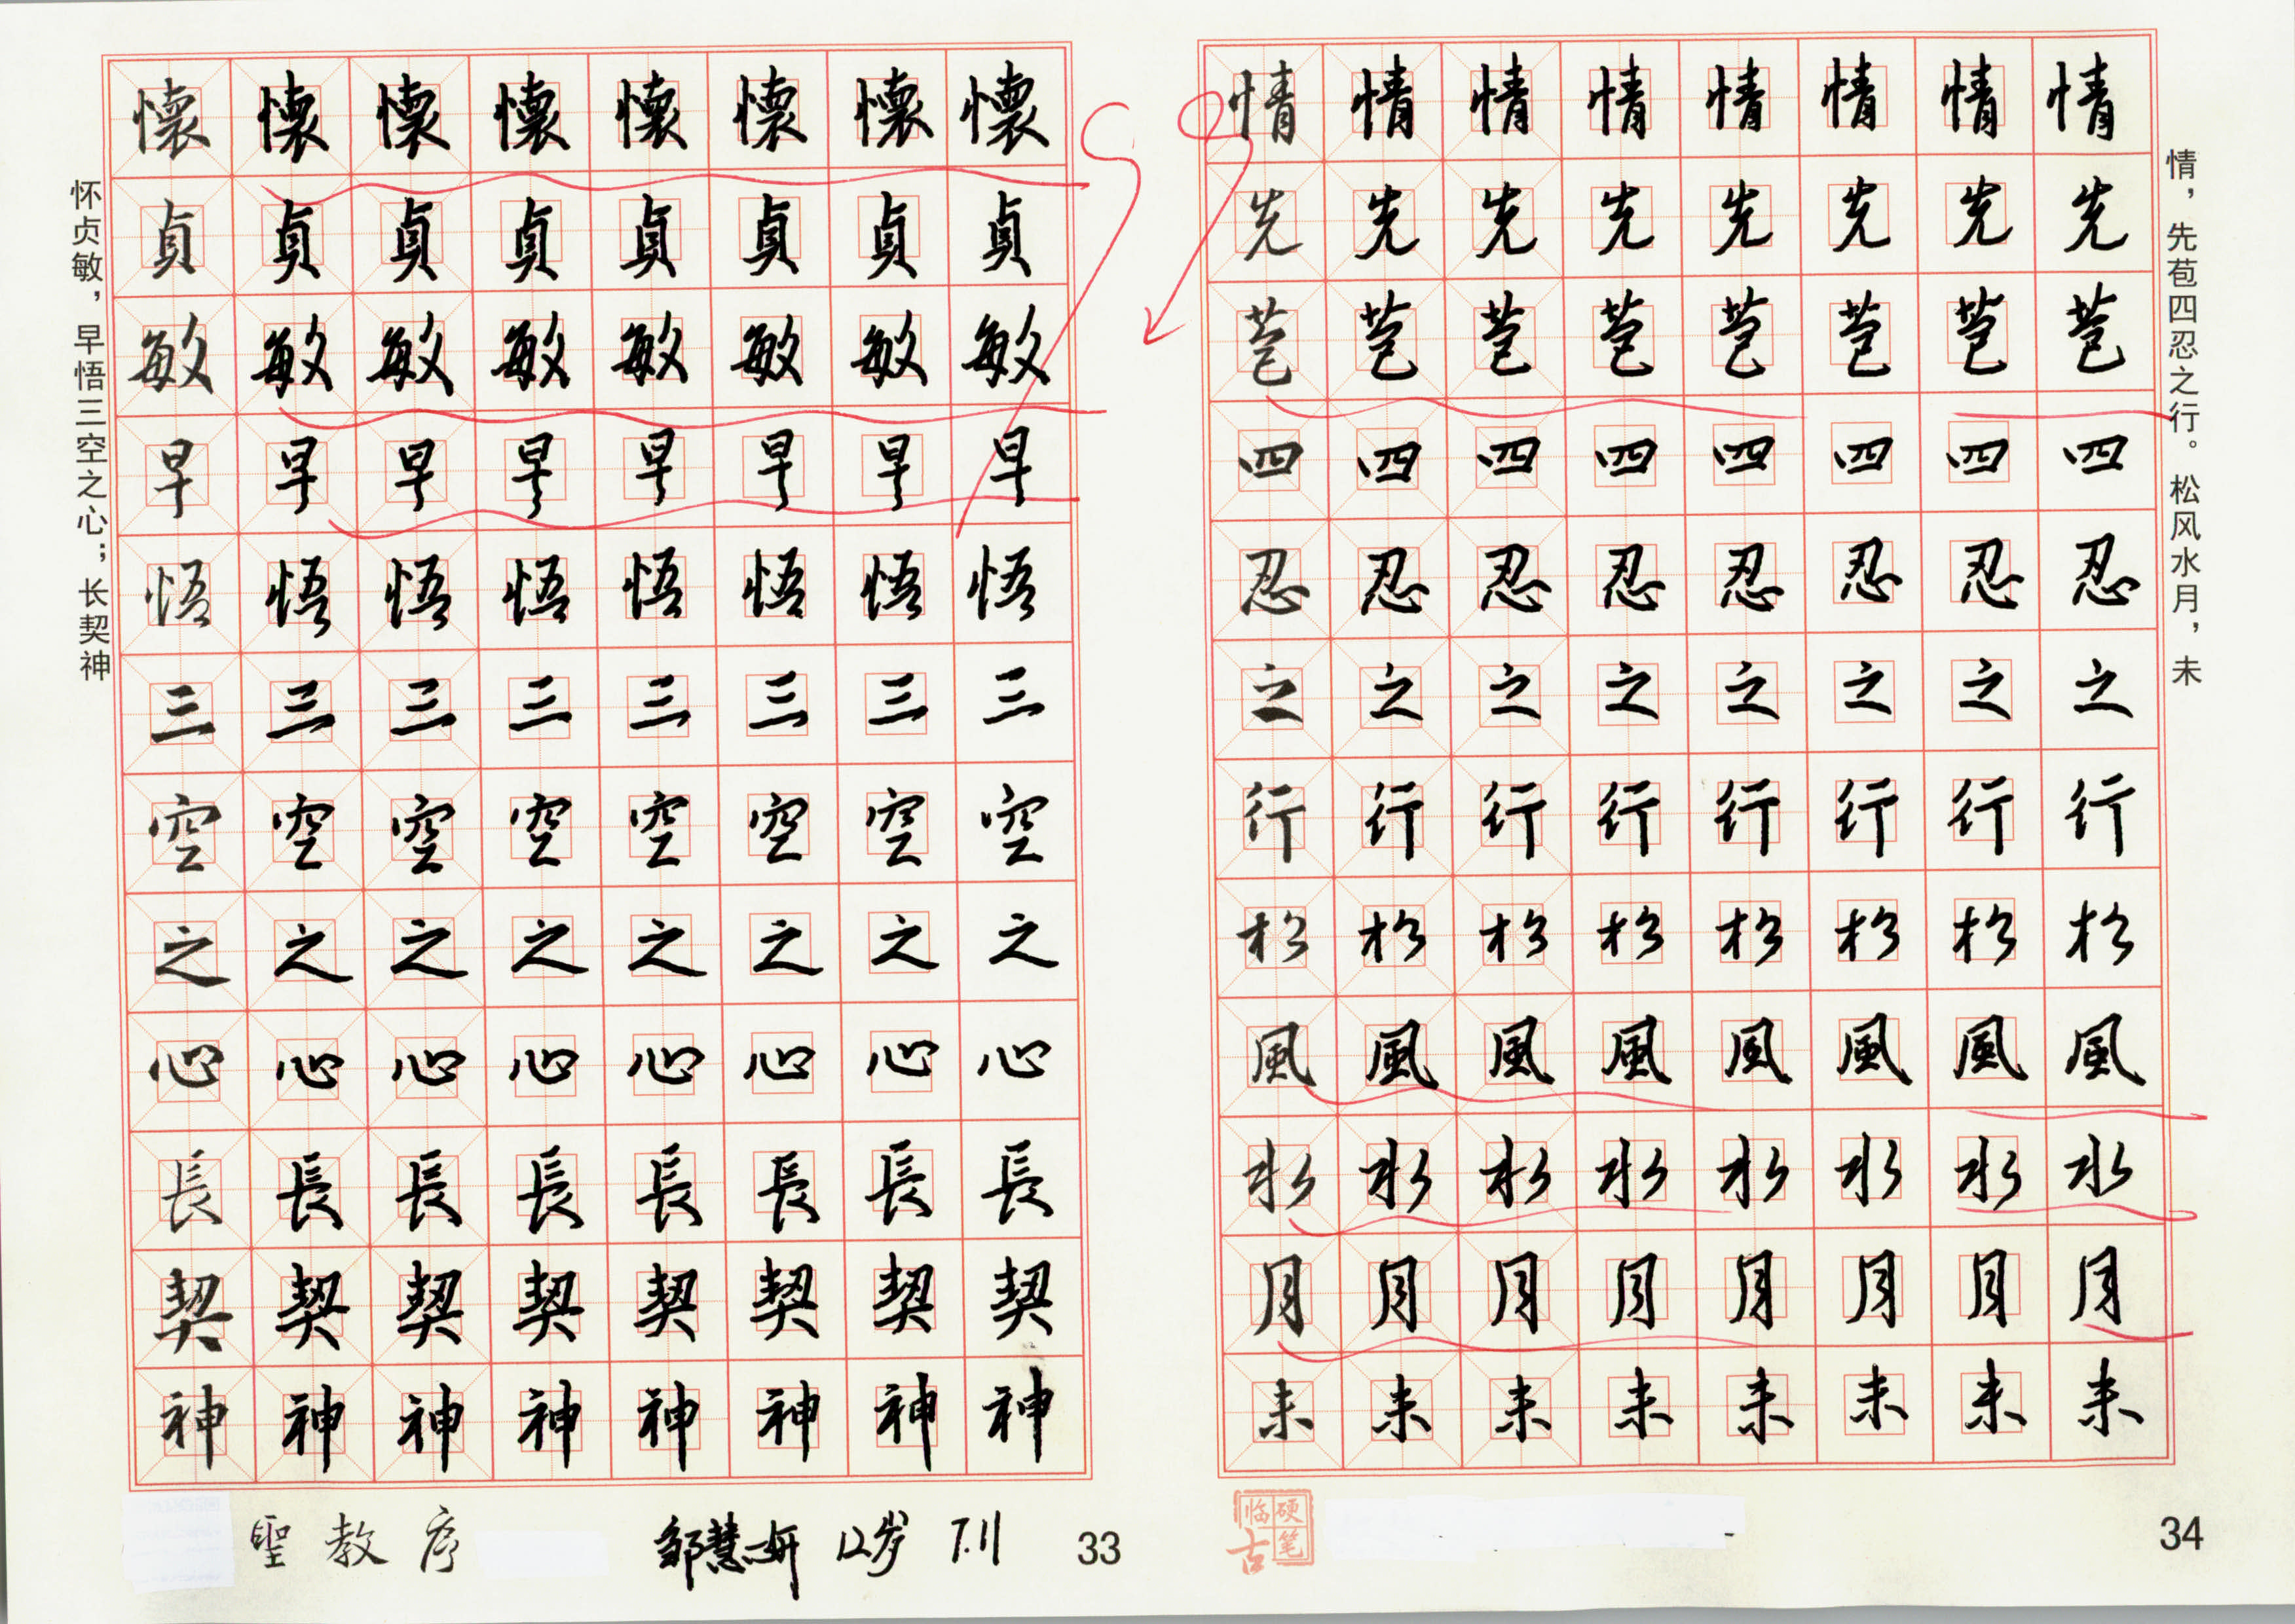 怀贞敏，早悟三空之心；长契神
懷懷懷懷懷懷懷懷
貞貞貞貞貞貞貞貞
敏敏敏敏敏敏敏敏
早早早早早早早早
悟悟悟悟悟悟悟悟
三三三三三三三三
空空空空空空空空
之之之之之之之之
心心心心心心心心
長長長長長長長長
契契契契契契契契
神神神神神神神神
聖教序
邹慧妍 12岁 7.11
33
情情情情情情情情
先先先先先先先先
苞苞苞苞苞苞苞苞
四四四四四四四四
忍忍忍忍忍忍忍忍
之之之之之之之之
行行行行行行行行
松松松松松松松松
風風風風風風風風
水水水水水水水水
月月月月月月月月
未未未未未未未未
情，先苞四忍之行。松风水月，未
硬笔临古
34